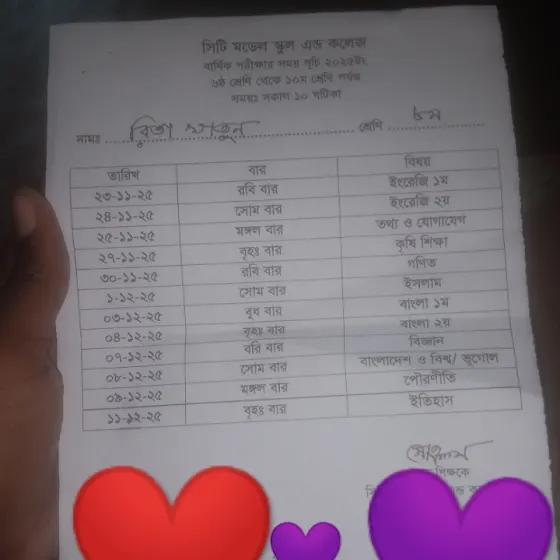 সিটি মডেল স্কুল এন্ড কলেজ
বার্ষিক পরীক্ষার সময় সূচি ২০২৫ইং
৬ষ্ঠ শ্রেণি থেকে ১০ম শ্রেণি পর্যন্ত
সময়ঃ সকাল ১০ ঘটিকা
নামঃ রিতা খাতুন শ্রেণি ৮ম
তারিখ বার বিষয়
২৩-১১-২৫ রবি বার ইংরেজি ১ম
২৪-১১-২৫ সোম বার ইংরেজি ২য়
২৫-১১-২৫ মঙ্গল বার তথ্য ও যোগাযোগ
২৭-১১-২৫ বৃহঃ বার কৃষি শিক্ষা
৩০-১১-২৫ রবি বার গণিত
১-১২-২৫ সোম বার ইসলাম
০৩-১২-২৫ বুধ বার বাংলা ১ম
০৪-১২-২৫ বৃহঃ বার বাংলা ২য়
০৭-১২-২৫ রবি বার বিজ্ঞান
০৮-১২-২৫ সোম বার বাংলাদেশ ও বিশ্ব/ ভূগোল
০৯-১২-২৫ মঙ্গল বার পৌরণীতি
১১-১২-২৫ বৃহঃ বার ইতিহাস